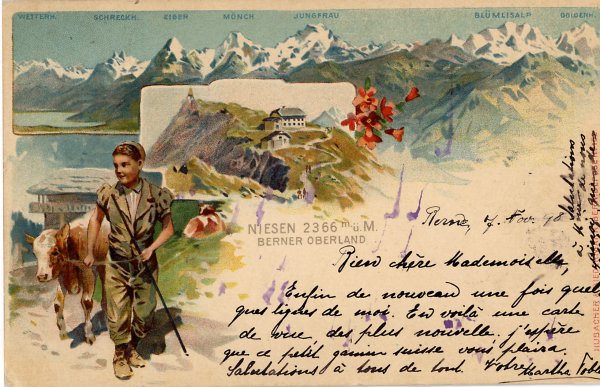 WETTERH. SCHRECKH. EIGER MÖNCH JUNGFRAU BLÜMLISALP DOLDENH.
NIESEN 2366 m ü. M.
BERNER OBERLAND
Berne, 7 Nov. 98
Bien chère Mademoiselle,
Enfin de nouveau une fois quel
ques lignes de moi. En voilà une carte
de vue des plus nouvelle. j'espère
que ce petit gamin suisse vous plaira.
Salutations à tous de tout. Votre
Martha Tobl
Salutations
à M.
de nous
HUBACHER